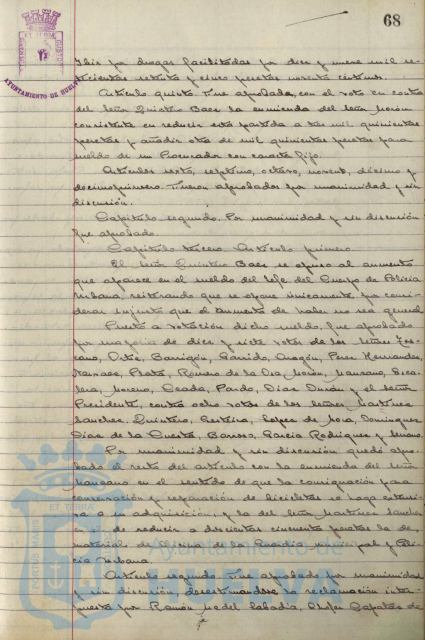 68
AYUNTAMIENTO DE HUELVA
por drogas facilitadas por diez y nueve mil se-
tecientas setenta y cinco pesetas noventa céntimos.
Artículo quinto. Fue aprobado, con el voto en contra
del Señor Quintero Baez la enmienda del Señor Morón
consistente en reducir esta partida a tres mil quinientas
pesetas y añadir otra de mil quinientas pesetas para
sueldo de un Procurador con caracter fijo.
Artículos sexto, septimo, octavo, noveno, décimo y
decimoprimero. Fueron aprobados por unanimidad y sin
discusión.
Capítulo segundo. Por unanimidad y sin discusión
fue aprobado.
Capítulo tercero. Artículo primero.
El Señor Quintero Baez se opuso al aumento
que aparece en el sueldo del Jefe del Cuerpo de Policía
Urbana, reiterando que se opone únicamente por consi-
derar injusto que el aumento de haber no sea general
Puesto a votación dicho sueldo, fue aprobado
por mayoría de diez y siete votos de los Señores
Ortiz, Barrigón, Garrido, Aragón, Perez Hernandez,
Plata, Romero de la Osa, Morón, Manzano,
Moreno, Ceada, Pardo, Diaz Durán y el Señor
Presidente, contra ocho votos de los Señores Martinez
Sanchez, Quintero, Lopez de Mora, Dominguez,
Diaz de la Cuesta, Barroso, Garcia Rodriguez y
Por unanimidad y sin discusión quedó apro-
bado el resto del artículo con la enmienda del Señor
Manzano en el sentido de que la consignación para
conservación y reparación de bicicletas se haga extensi-
va a su adquisición, y la del Señor Martinez Sanchez
de reducir a doscientas cincuenta pesetas la de
material de oficina de la Guardia municipal y Poli-
cía Urbana.
Artículo segundo. Fue aprobado por unanimidad
y sin discusión, desestimandose la reclamación inter-
puesta por Ramón Medel Labadia, Chofer Capataz de
PORTUS MARIS ET TERRAE CUSTODIA
Ayuntamiento de
HUELVA